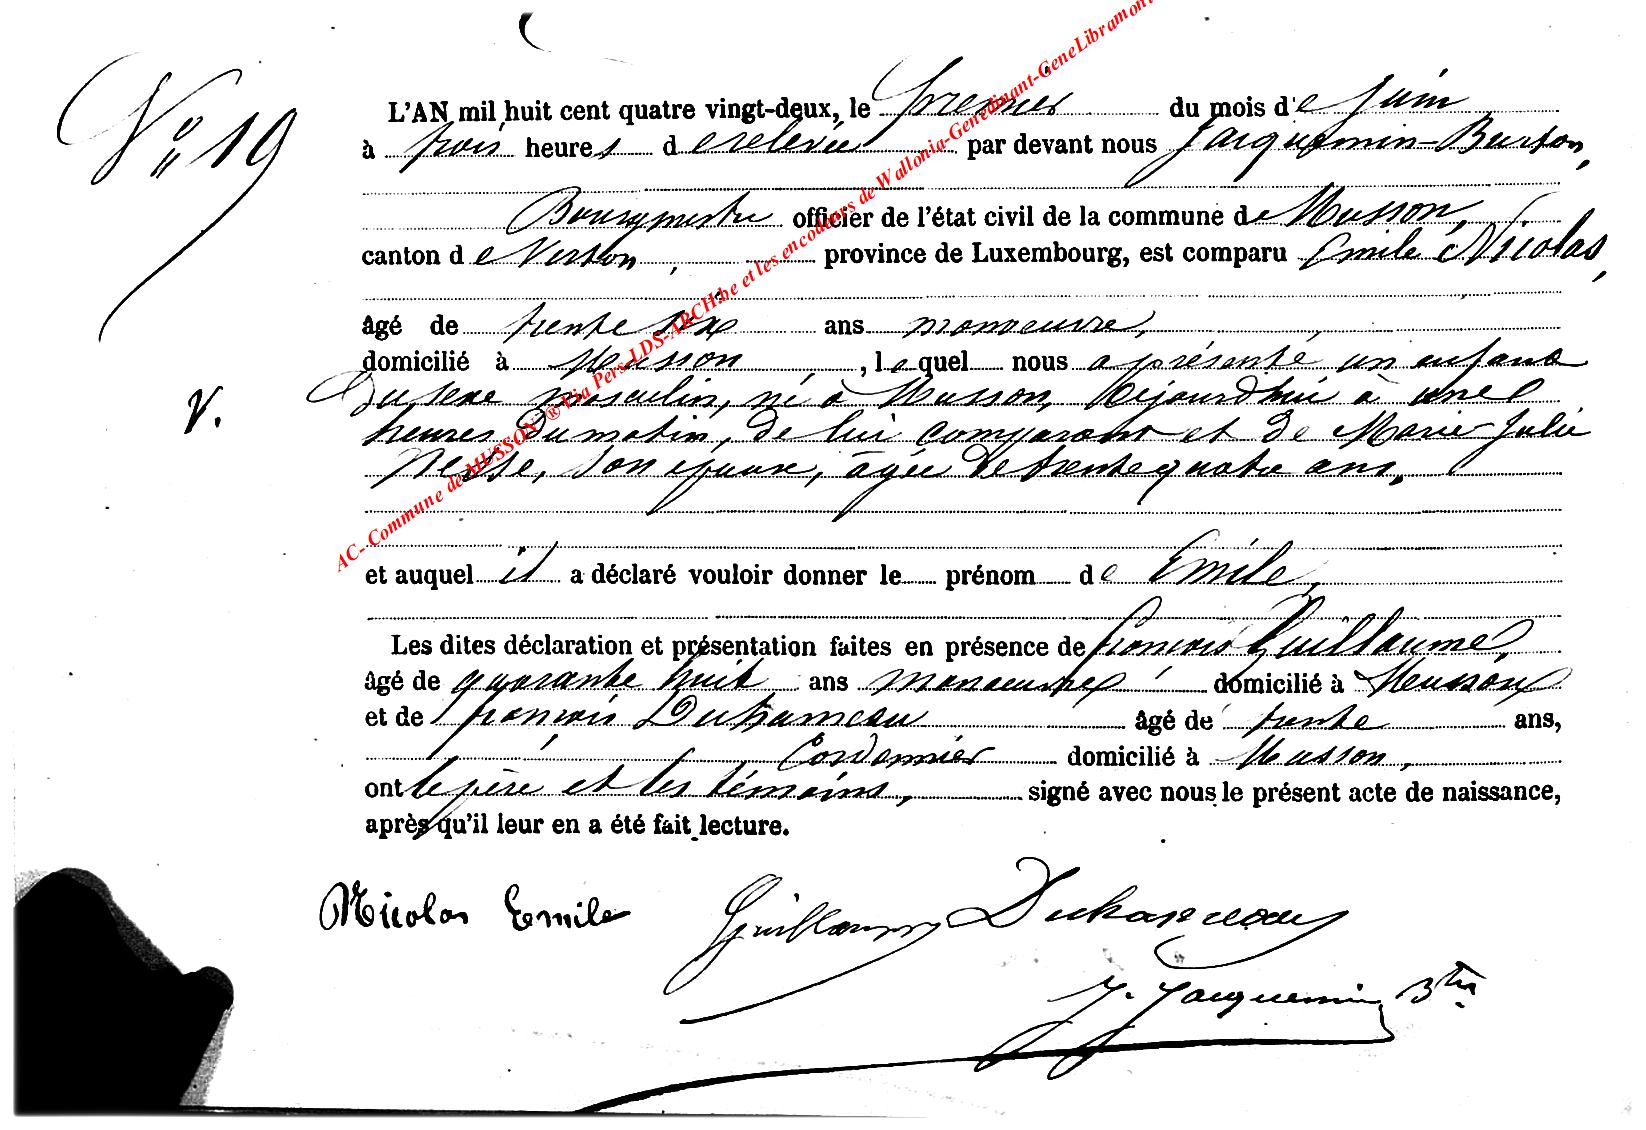 N° 19
L'AN mil huit cent quatre vingt-deux, le premier du mois de juin
à trois heures de relevée par devant nous Jacquemin-Burton,
Bourgmestre officier de l'état civil de la commune de Musson,
canton de Virton, province de Luxembourg, est comparu Emile Nicolas,
âgé de trente six ans manoeuvre,
domicilié à Musson, lequel nous a présenté un enfant
V. du sexe masculin, né à Musson, aujourd'hui à une
heures du matin, de lui comparant et de Marie Julie
son épouse, âgée de trente quatre ans,
et auquel il a déclaré vouloir donner le prénom de Emile,
Les dites déclaration et présentation faites en présence de François Guillaume,
âgé de quarante huit ans manoeuvre domicilié à Musson
et de François Duhameau âgé de trente ans,
Cordonnier domicilié à Musson,
ont le père et les témoins, signé avec nous le présent acte de naissance,
après qu'il leur en a été fait lecture.
Nicolas Emile Guillaume Duhameau
J. Jacquemin Btre
AC- Commune de MUSSON ® Via Pers-LDS-ARCH.be et les encodeurs de Wallonia-Genedinant-GeneLibramont